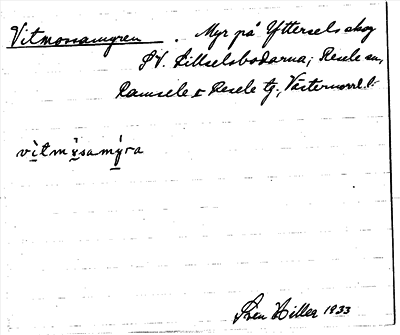 Vitmossamyren. Myr på Yttersels skog
SV. Lillselsbodarna; Resele sn,
Ramsele o Resele tg, Västernorrl. l.
vìtmÿsamýra
Hiller 1933